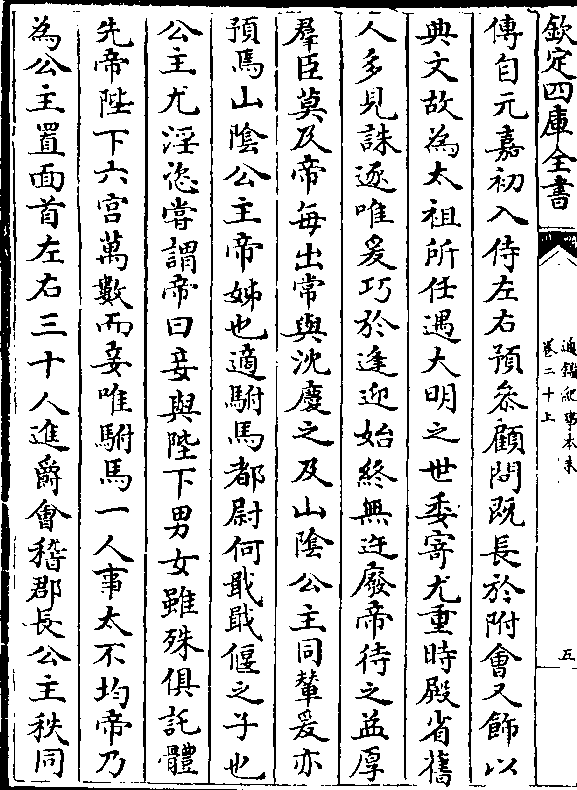 欽定四庫全書
通鑑紀事本末
卷二十上
五
傳自元嘉初入侍左右預叅顧問既長於附會又飾以
典文故為太祖所任遇大明之世委寄尤重時殿省舊
人多見誅逐唯爰巧於逢迎始終無迕廢帝待之益厚
羣臣莫及帝每出常與沈慶之及山陰公主同輦爰亦
預焉山陰公主帝姊也適駙馬都尉何戢戢偃之子也
公主尤淫恣甞謂帝曰妾與陛下男女雖殊俱託體
先帝陛下六宫萬數而妾唯駙馬一人事太不均帝乃
為公主置面首左右三十人進爵會稽郡長公主秩同